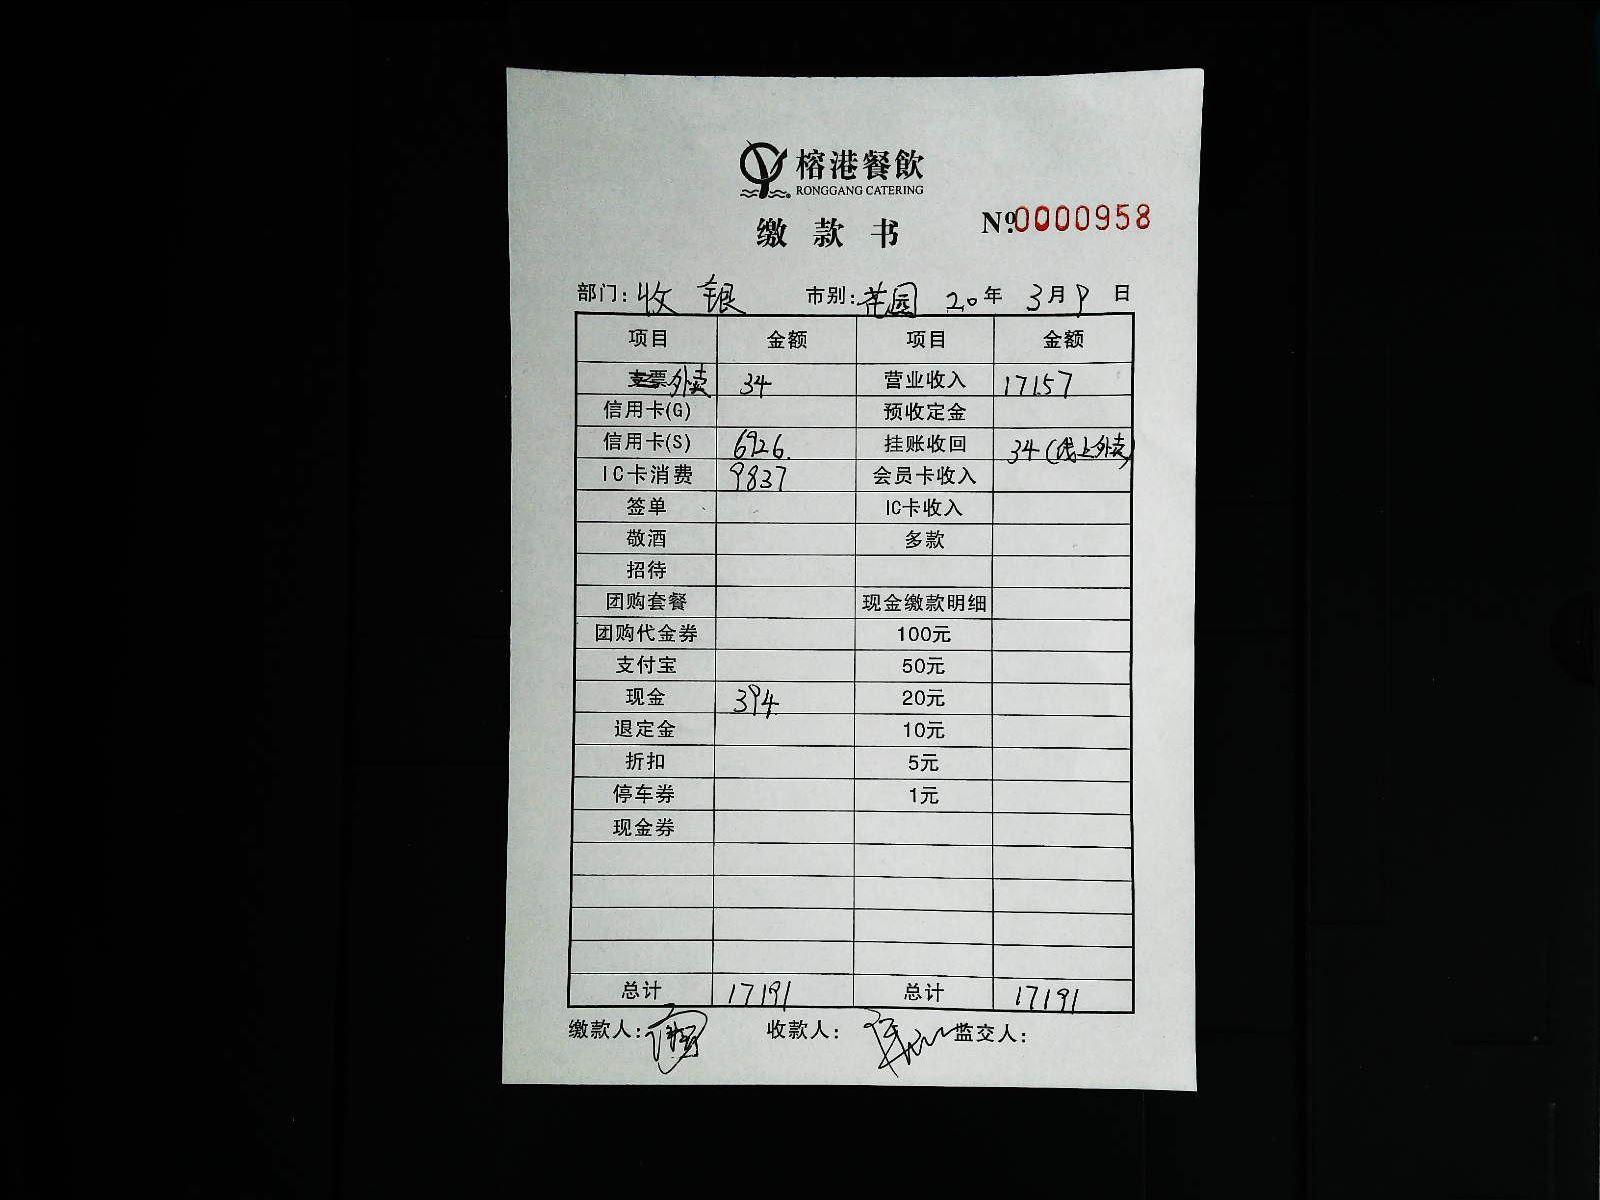 榕港餐飲
RONGGANG CATERING
缴款书
№0000958
部门:收银 市别:花园 20年3月9日
项目 金额 项目 金额
支票外卖 34 营业收入 17157
信用卡(G) 预收定金
信用卡(S) 6926. 挂账收回 34(线上外卖)
IC卡消费 9837 会员卡收入
签单 IC卡收入
敬酒 多款
招待
团购套餐 现金缴款明细
团购代金券 100元
支付宝 50元
现金 394 20元
退定金 10元
折扣 5元
停车券 1元
现金券
总计 17191 总计 17191
缴款人: 收款人: 监交人: